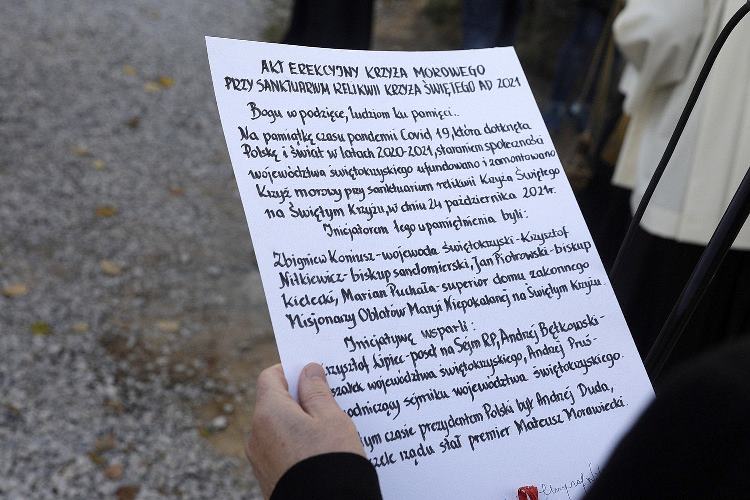 AKT EREKCYJNY KRZYŻA MOROWEGO
PRZY SANKTUARIUM RELIKWII KRZYŻA ŚWIĘTEGO AD 2021
Bogu w podzięce, ludziom ku pamięci..
Na pamiątkę czasu pandemii Covid 19, która dotknęła
Polskę i świat w latach 2020-2021, staraniem społeczności
województwa świętokrzyskiego ufundowano i zamontowano
Krzyż morowy przy sanktuarium relikwii Krzyża Świętego
na Świętym Krzyżu, w dniu 24 października 2021r.
Inicjatorem tego upamiętnienia byli:
Zbigniew Koniusz-wojewoda świętokrzyski-Krzysztof
Nitkiewicz-biskup sandomierski, Jan Piotrowski-biskup
kielecki, Marian Puchała-superior domu zakonnego
Misjonarzy Oblatów Maryi Niepokalanej na Świętym Krzyżu.
Inicjatywę wsparli:
rzysztof Lipiec-poseł na Sejm RP, Andrzej Bętkowski-
szałek województwa świętokrzyskiego, Andrzej Pruś-
odniczący sejmiku województwa świętokrzyskiego.
tym czasie prezydentem Polski był Andrzej Duda,
czele rządu stał premier Mateusz Morawiecki.